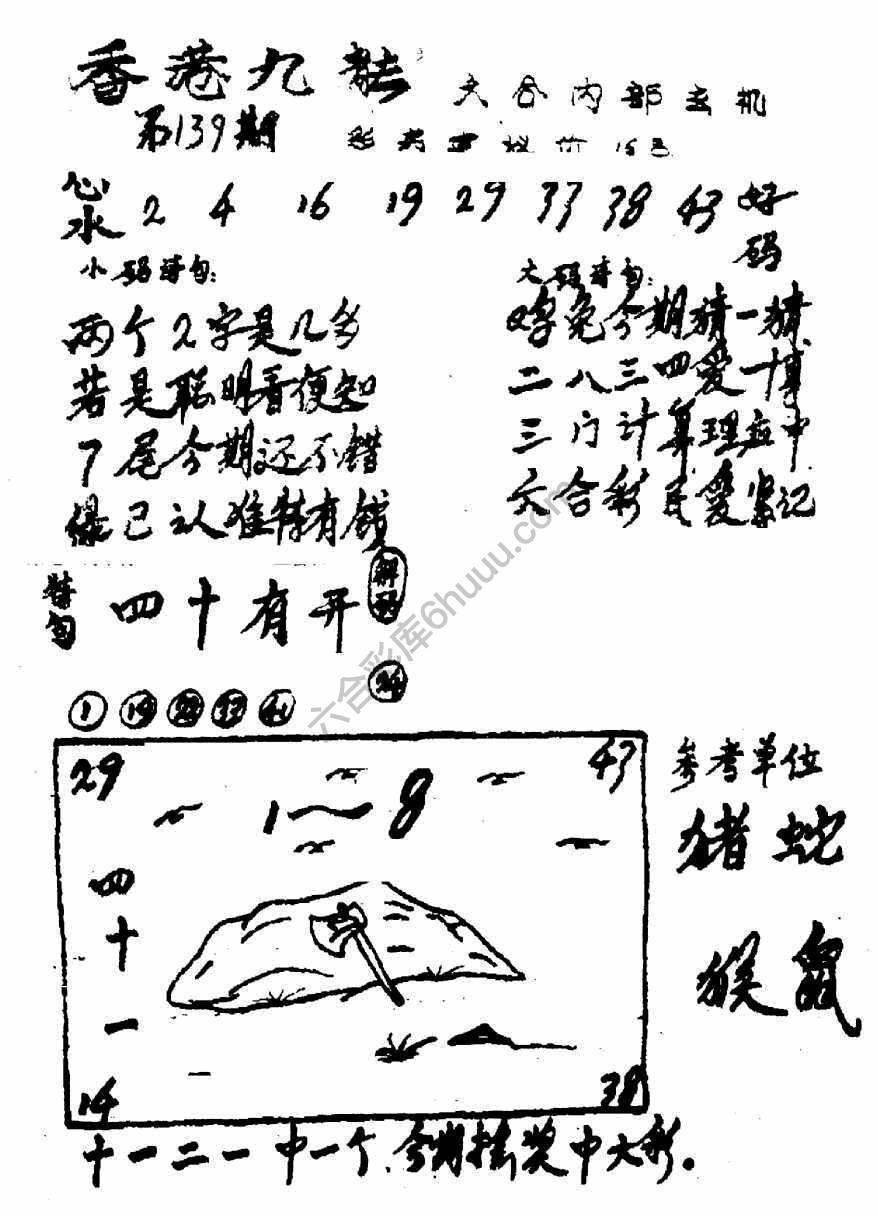 香港九龙
六合内部玄机
第139期
心水 2 4 16 19 29 37 38 43 好码
小码诗句:
两个2字是几多
若是聪明看便知
7尾今期还不错
绿己认准特有钱
大码诗句:
鸡兔今期猜一猜
二八三四爱十算
三门计算理应中
六合彩民爱紧记
特句
四十有开
解码
1 19 41
六合彩库6huuu.com
29 43
1~8
四十一
14 38
参考单位
猪蛇
猴鼠
十一二一中一个,今期挂奖中大彩。